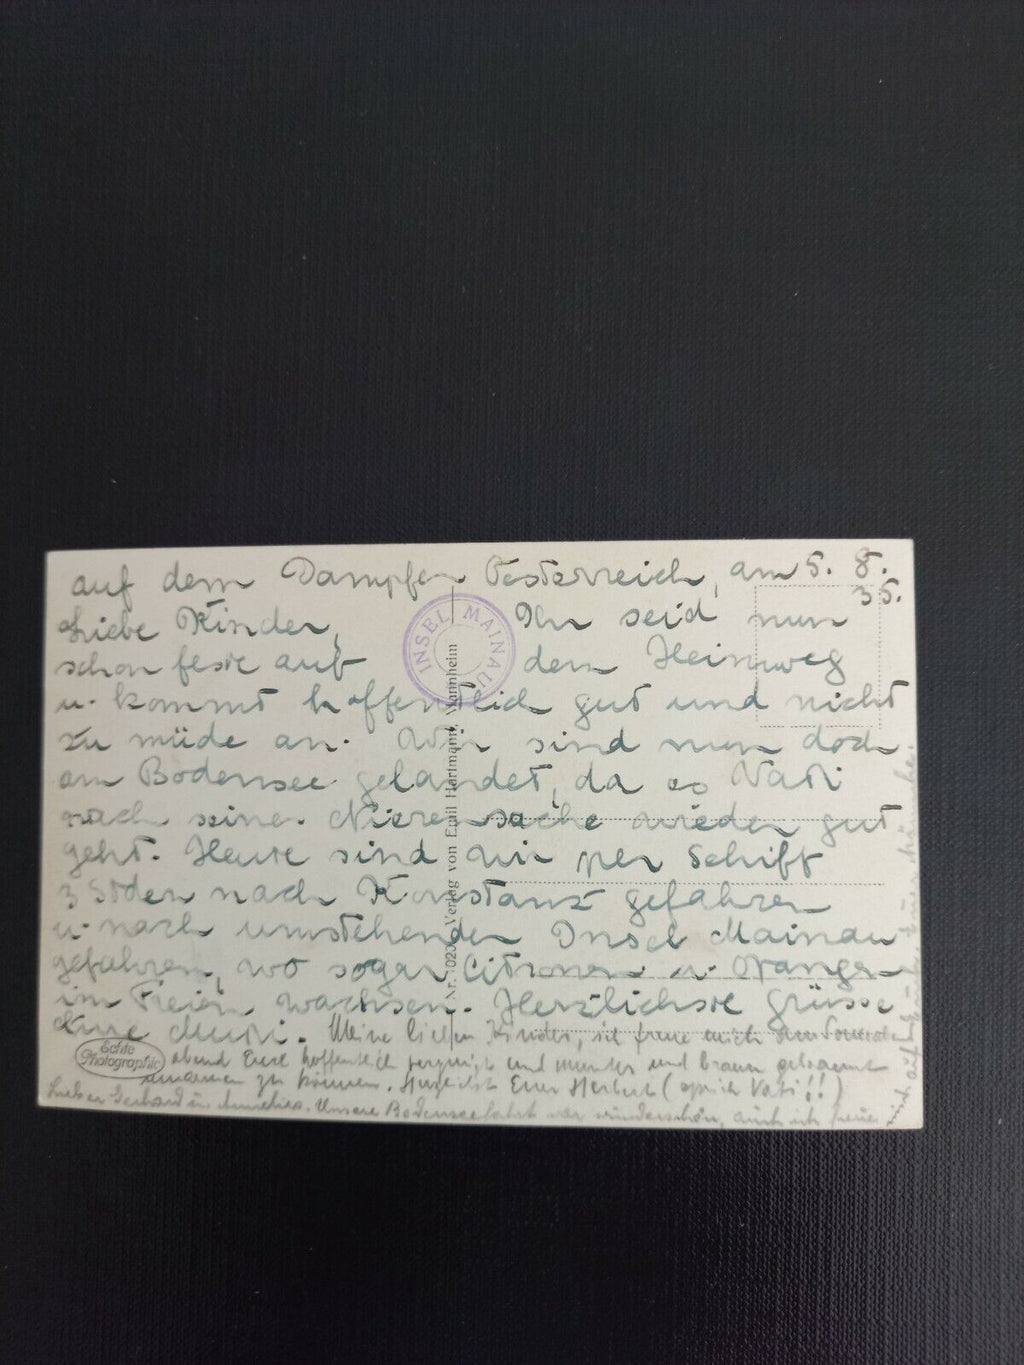 auf dem Dampfer Oesterreich, am 5. 8.
35.
Liebe Kinder, Ihr seid nun
schon feste auf dem Heimweg
u. kommt hoffentlich gut und nicht
zu müde an. Wir sind nun doch
am Bodensee gelandet, da es Vati
nach seiner Nierensache wieder gut
geht. Heute sind wir per Schiff
3 Stden nach Konstanz gefahren
u. nach umstehender Insel Mainau
gefahren, wo sogar Citronen u. Orangen
im Freien wachsen. Herzlichste Grüsse
Eure Mutti. Meine lieben Kinder, ich freue mich
abend Euch hoffentlich vergnügt und munter und braun gebrannt
umarmen zu können. Herzlichst Euer Herbert (sprich Vati!!)
Lieber Gerhard u. Annelies. Unsere Bodenseefahrt war wunderschön, auch ich freue
INSEL MAINAU
Verlag von Emil Hartmann, Mannheim
Echte
Photographie